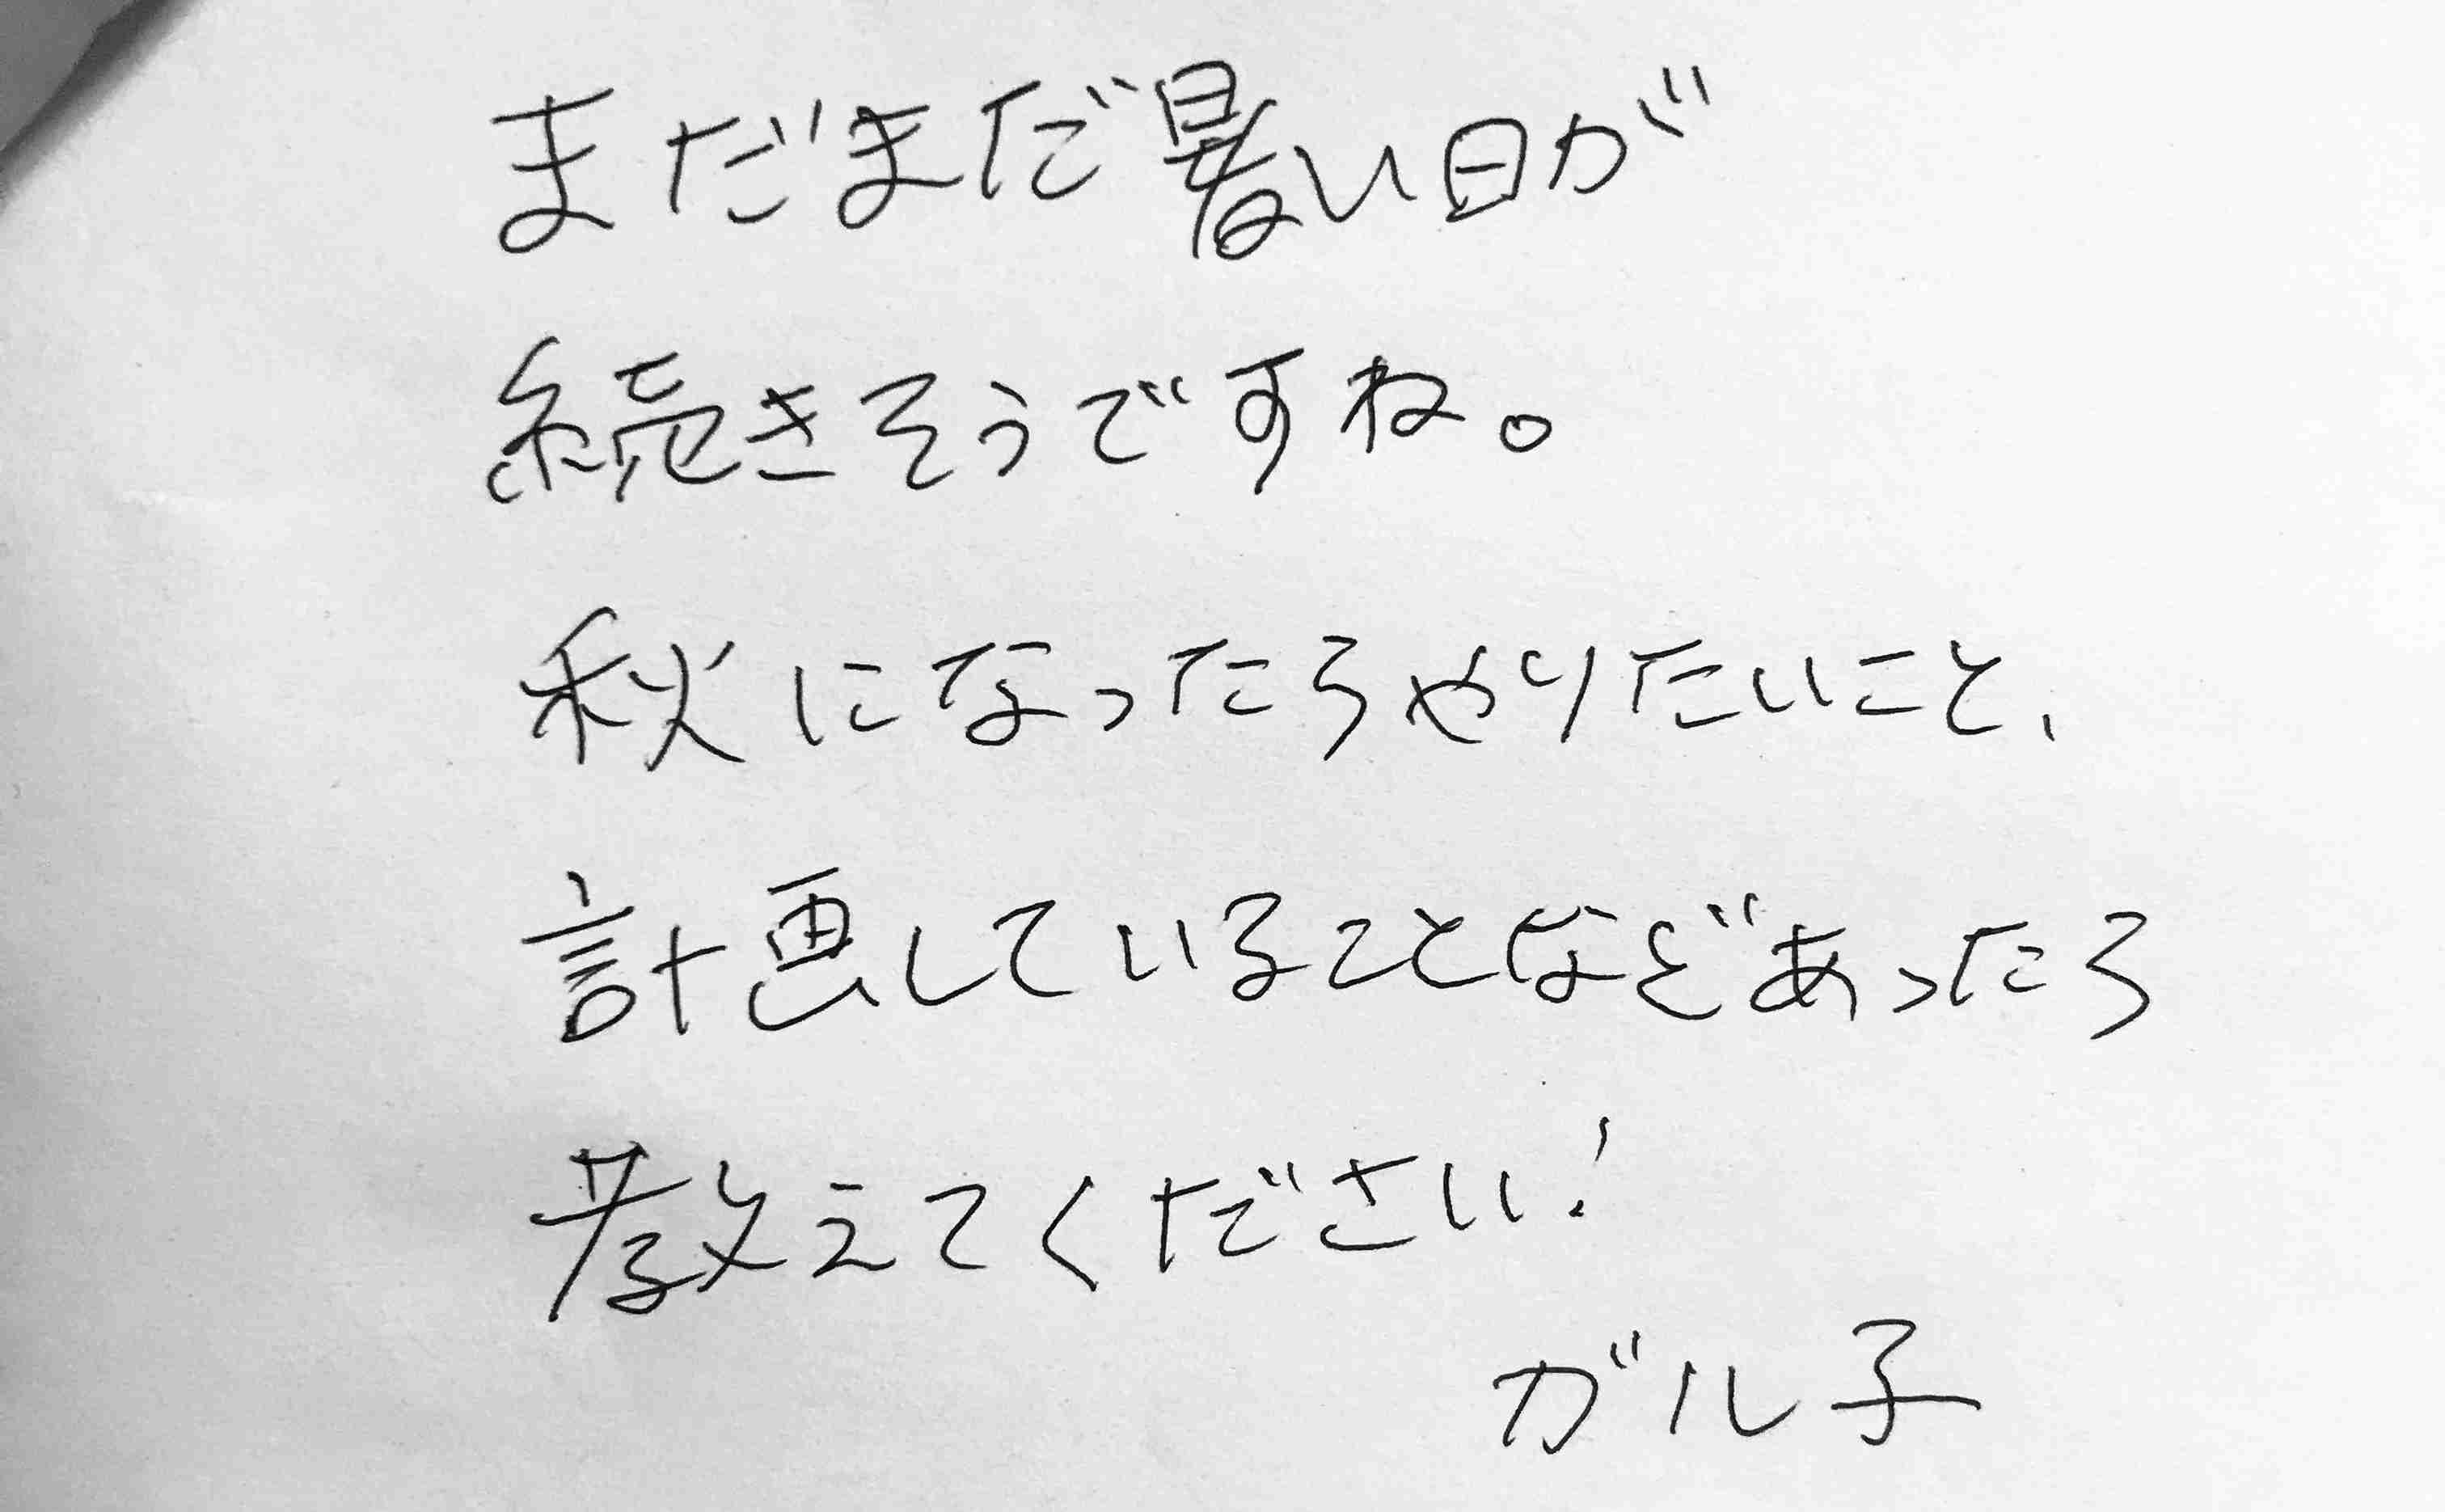 まだまだ暑い日が
続きそうですね。
秋になったらやりたいこと、
計画していることなどあったら
教えてください!
ガル子